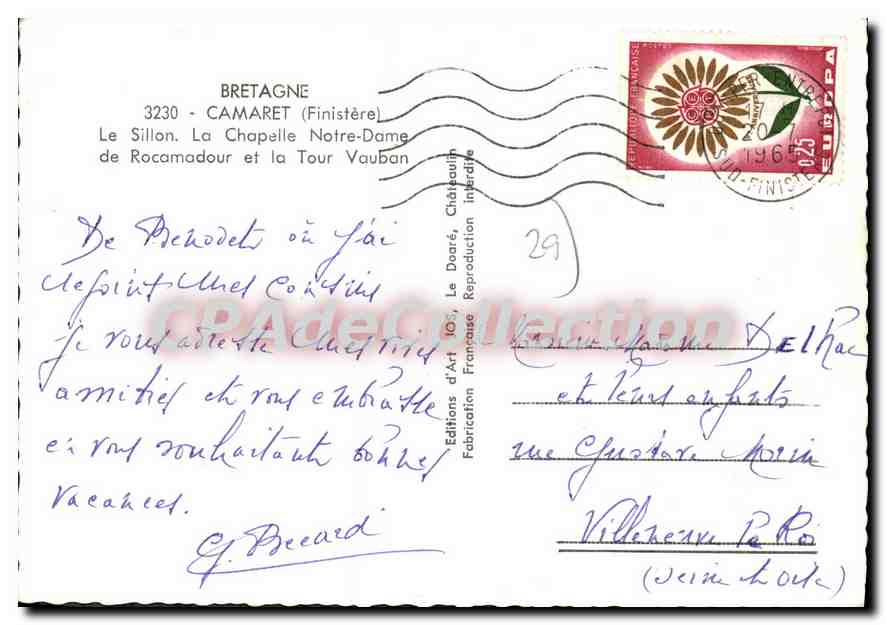 BRETAGNE
3230 - CAMARET (Finistère)
Le Sillon. La Chapelle Notre-Dame
de Rocamadour et la Tour Vauban
De Benodet où j'ai
rejoint mes cousins
je vous adresse mes
amitiés et vous embrasse
en vous souhaitant bonnes
vacances.
G. Beccard
Editions d'Art JOS, Le Doaré, Châteaulin
Fabrication Française Reproduction Interdite
REPUBLIQUE FRANÇAISE
POSTES
EUROPA
0,25
1965
SUD-FINISTE
29
CPAdeCollection
Monsieur Madame Delrac
et leurs enfants
rue Gustave Morin
Villeneuve le Roi
(Seine et Oise)